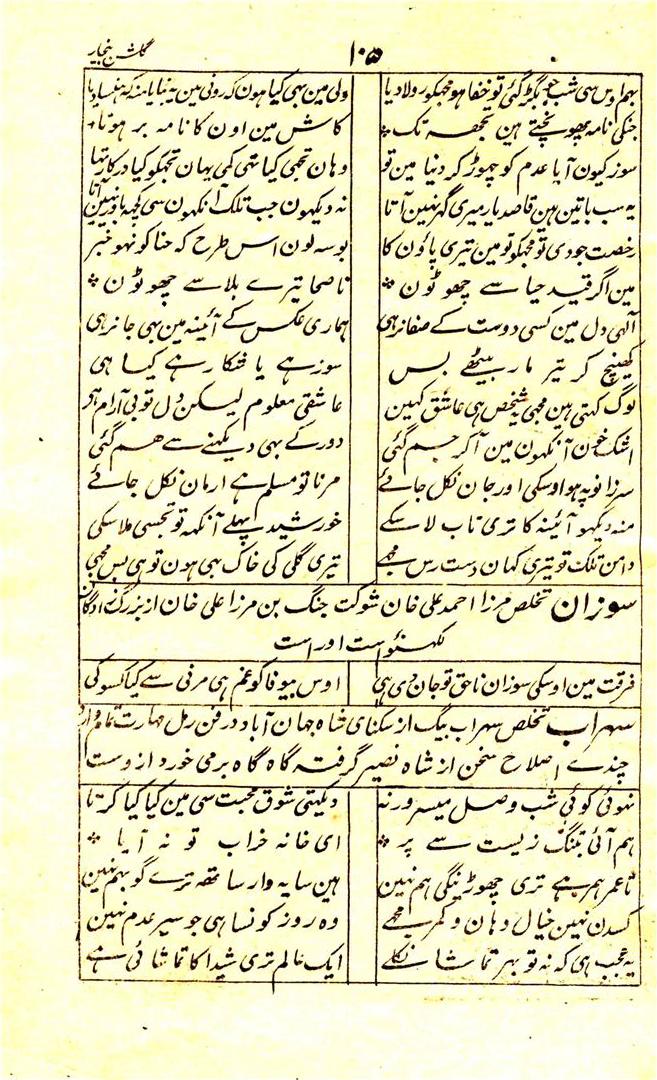 گلشن بیخار ۱۰۵
ہم اوس سی شب جو بگڑ گئی تو خفا ہو مجہکو رولا دیا ولی مین بہی کیا ہون کہ رونی مین یہ بنایا منہ کہ ہنسا دیا
جنکی نامہ پہونچتے ہین تجھہ تک * کاش مین اون کا نامہ بر ہوتا *
سوز کیون آیا عدم کو چہوڑ کر دنیا مین تو وہان تجہی کیا تہی کمی یہان تجہکو کیا درکار تہا
یہ سب باتین ہین قاصد یار میری گہر نہین آتا نہ دیکہون جب تلک آنکہون سی کچہ باور نہین آتا
رخصت جو دی تو مجہکو تو مین تیری پاؤن کا بوسہ لون اس طرح کہ حنا کو نہو خبر
مین اگر قید حیا سے چھوٹون * ناصحا تیرے بلا سے چھوٹون *
الٰہی دل مین کسی دوست کے صفا نرہی ہماری عکس کے آئینہ مین بہی جا نرہی
کھینچ کر تیر مار بیٹھے بس سوز ہے یا شکار ہے کیا ہی
لوگ کہتی ہین مجہی یہ شخص ہی عاشق کہین عاشقی معلوم لیکن دل تو بی آرام ہی
اشک خون آنکہون مین آ کر جم گئی دور کے بہی دیکہنے سے ہم گئی
سر زانو پہ ہو اوسکی اور جان نکل جائے مرنا تو مسلم ہے ارمان نکل جائے
منہ دیکہو آئینہ کا تری تاب لا سکے خورشید پہلے آنکہہ تو تجسی ملا سکی
دامن تلک تو تیری کہان دسترس مجہے تیری گلی کی خاک بہی ہون تو ہی بس مجہی
سوزان تخلص مرزا احمد علی خان شوکت جنگ بن مرزا علی خان از بزرگ زادگان
لکہنؤ است اوراست
فرقت مین اوسکی سوزان ناحق تو جان دی ہی اوس بیوفا کو غم ہی مرنی سے کیا کسو کی
سہراب تخلص سہراب بیگ از سکنای شاہ جہان آباد در فن رمل مہارت تمام دارد
چندے اصلاح سخن از شاہ نصیر گرفتہ گاہ گاہ برمی خورد از وست
نہوئی کوئی شب وصل میسر ورنہ دیکہتی شوق محبت سی مین کیا کیا کرتا
ہم آئی بتنگ زیست سے پر * ای خانہ خراب تو نہ آیا *
تا عمر ہم پہ ہے تری چھوڑینگی ہم نہین ہین سایہ وار ساتہہ ترے گو بہم نہین
کسدن نہین خیال دہان و کمر مجہے وہ روز کونسا ہی جو سیر عدم نہین
یہ عجب ہی کہ نہ تو بہر تماشا نکلے ایک عالم تری شیدا کا تماشائی ہے